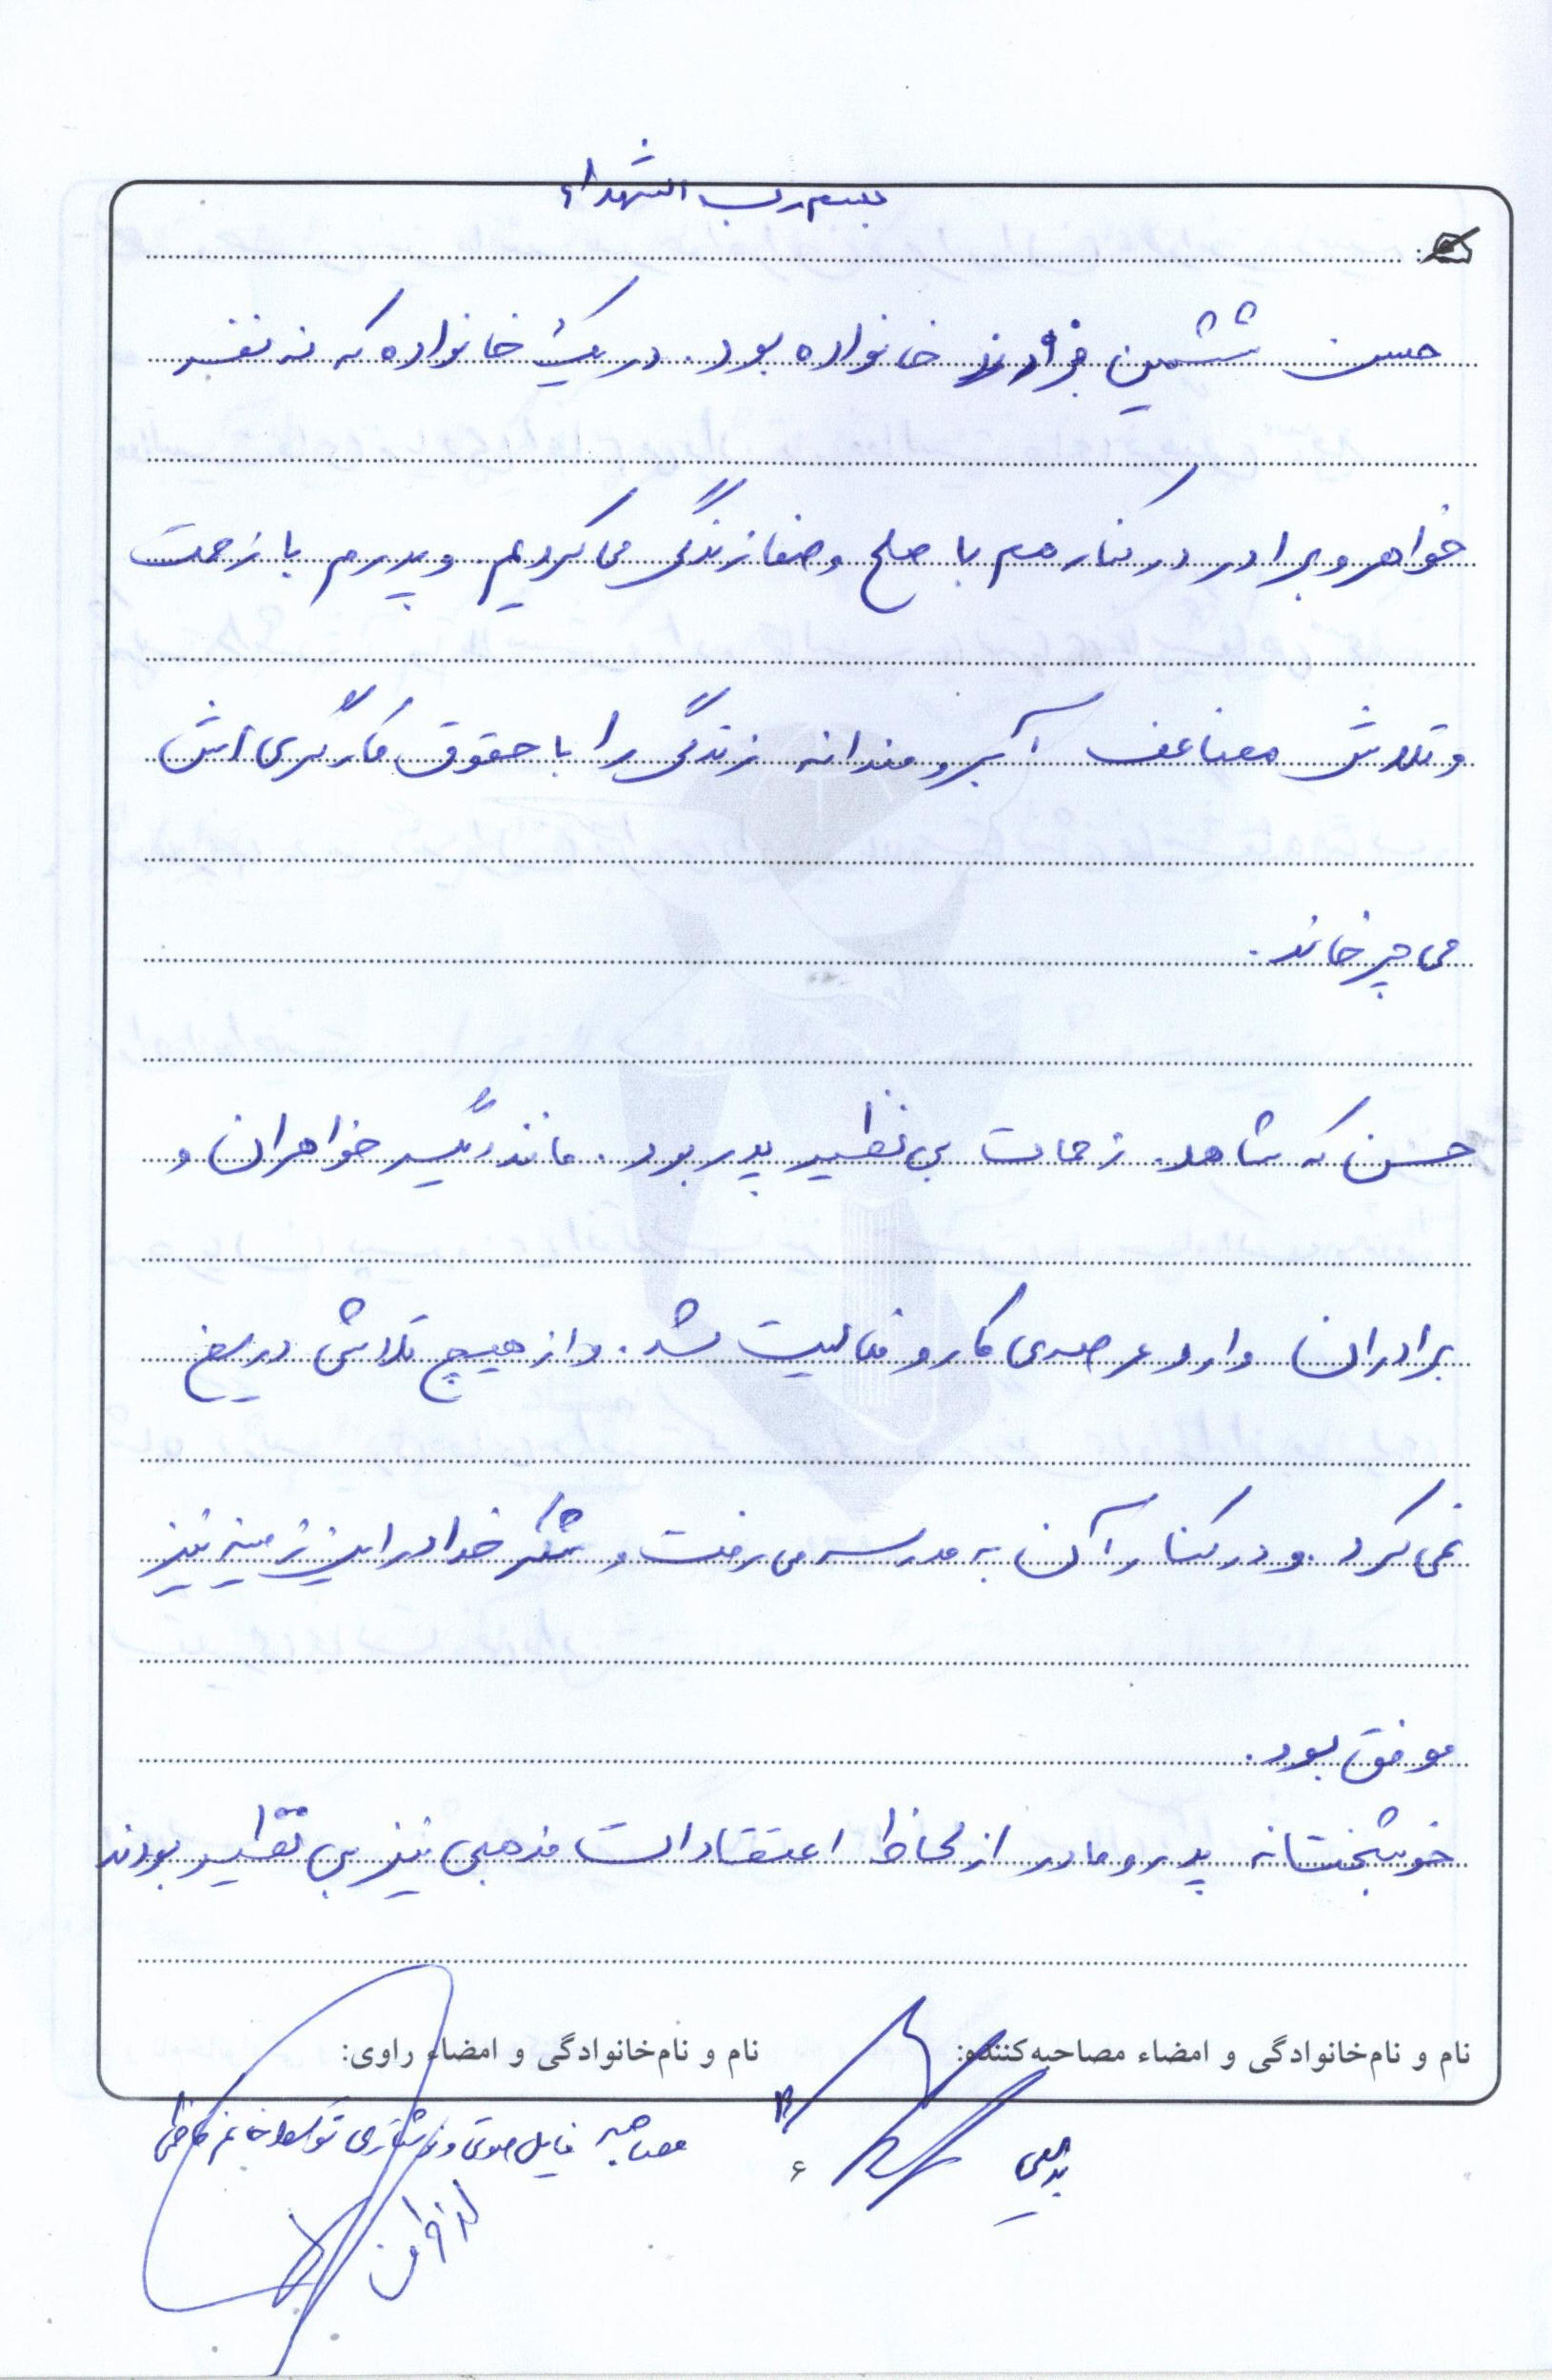 بسم رب الشهداء
حسن ششمین فرزند خانواده بود. در یک خانواده که نه نفر
خواهر و برادر در کنار هم با صلح و صفا زندگی می کردیم. و پدرم با زحمت
و تلاش مضاعف آبرومندانه زندگی را با حقوق کارگری اش
می چرخاند.
حسن که شاهد زحمات بی نظیر پدر بود. مانند دیگر خواهران و
برادران وارد عرصه ی کار و فعالیت شد. و از هیچ تلاشی دریغ
نمی کرد. و در کنار آن به مدرسه می رفت و شکر خدا در این زمینه نیز
موفق بود.
خوشبختانه پدر و مادر از لحاظ اعتقادات مذهبی نیز بی نظیر بودند
نام و نام‌خانوادگی و امضاء مصاحبه‌کننده:
نام و نام‌خانوادگی و امضاء راوی:
مصاحبه فایل صوتی و توسط خانم
۶